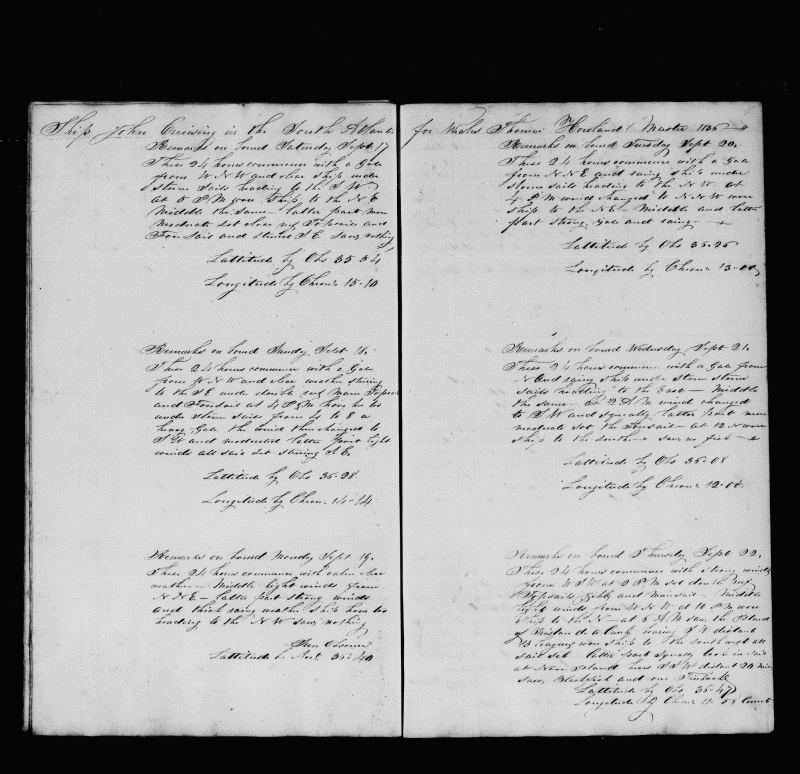 Ship John Cruising in the South Atlantic
Remarks on bourd Saturday Sept 17
These 24 hours commence with a Gale
from W N W and clear ship under
storm sails heading to the S W
at 5 P M wore Ship to the N E
Middle the same latter part more
moderate set close reef Topsails and
Fore sail and steered S E saw nothing
Lattitude by Obs 35 54
Longitude by Chron: 15-10
Remarks on bourd Sunday Sept 18.
These 24 hours commence with a Gale
from W N W and clear weather stering
to the S E under double reef Main Topsail
and Foresail at 4 P M hove her too
under storm sails from 4 to 8 a
heavy Gale the wind then changed to
S W and moderated latter part light
winds all sail set stering S E.
Lattitude by Obs 35-28
Longitude by Chron: 14-14
Remarks on bourd Monday Sept 19.
These 24 hours commence with calm clear
weather Middle light winds from
N N E latter part strong winds
and thick rainy weather ship hove too
heading to the N W saw nothing
Sun Obscured
Lattitude by 35-40
for Whales Thomas Howland Master 1836
Remarks on bourd Tuesday Sept 20.
These 24 hours commence with a Gale
from N N E and rainy ship under
storm sails heading to the N W at
4 P M wind changed to N N W wore
ship to the N E Middle and latter
part strong Gale and rainy
Lattitude by Obs 35-26
Longitude by Chron: 13-00
Remarks on bourd Wednesday Sept 21.
These 24 hours commence with a Gale from
N and rainy ship under storm
sails heading to the East Middle
the same at 2 A M wind changed
to S W and squally latter part more
moderate set the Topsails at 12 N wore
ship to the south saw no fish
Lattitude by Obs 35-08
Longitude by Chron: 12-00
Remarks on bourd Thursday Sept 22.
These 24 hours commence with strong winds
from W S W at 2 P M set double reef
Topsails Jibb and Mainsail Middle
light winds from W N W at 10 P M wore
ship to the N at 5 A M saw the Island
of Tristan da Cunha bearing S W distant
15 Leagues wore ship to the southwest all
sail set latter part squally took in sail
at Noon Island bore S S W distant 20 miles
saw Blackfish and one Finback
Lattitude by Obs 35-47
Longitude by Chron 11-58